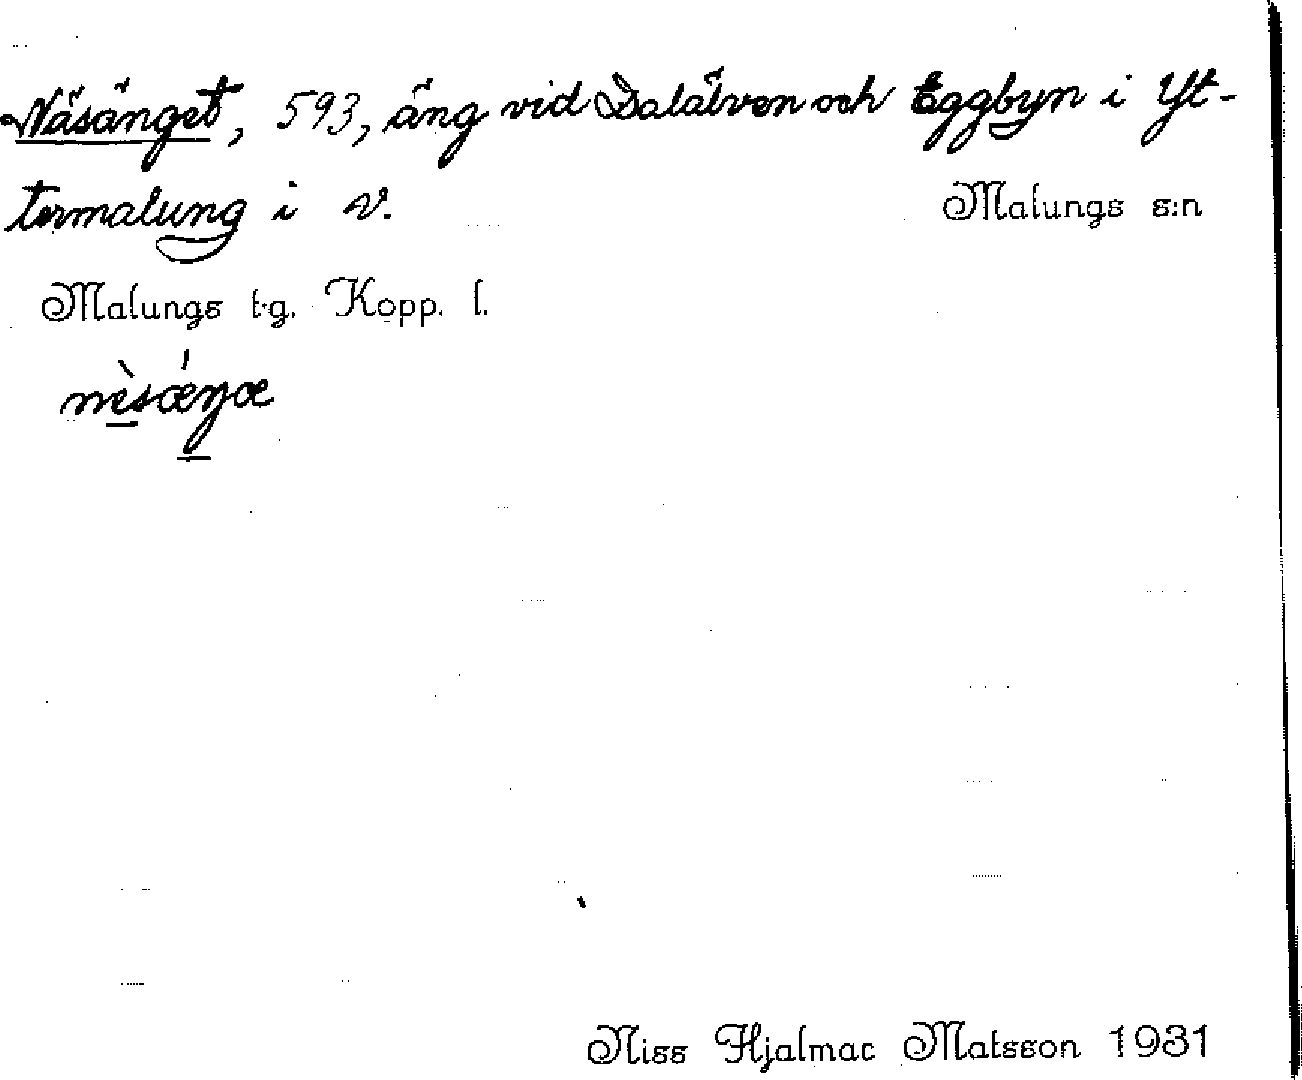 Näsänget, 593, äng vid Dalälven och Eggbyn i Yt-
termalung i V.
Malungs s:n
Malungs t.g. Kopp. l.
nèsǽŋæ
Niss Hjalmar Matsson 1931